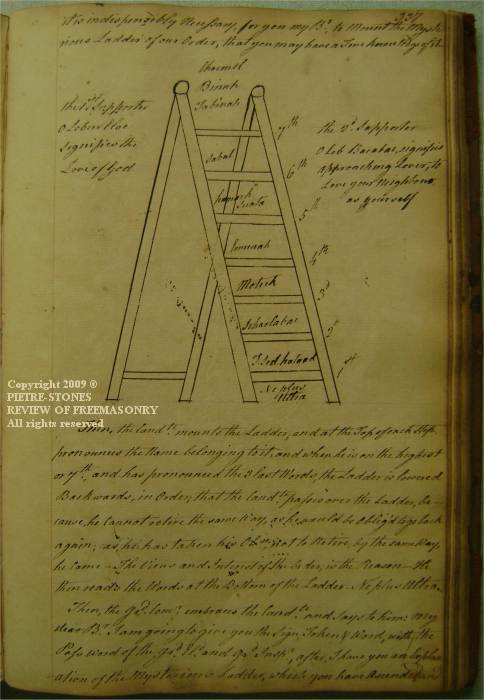 337
it is indispensibly Necessary, for you my Br. to Mount the Myste-
rious Ladder of our Order, that you may have a True knowledge of it
Charmel
Binah
Tabinah
the 1st Supporter
Oheb Eloe
Signifies the
Love of God
the 2d. Supporter
Oheb Kerabas, signifies
approaching Lover, to
Love your Neighbour
as yourself
7th
Sabal
6th
5th
Emunah
4th
Motech
3d
Schaelabac
2d
Tsedhakad
1st
Ne plus
Ultra
Copyright 2009 ©
PIETRE-STONES
REVIEW OF FREEMASONRY
All rights reserved
Then, the Candte. mounts the Ladder, and at the Top of each Step
pronounces the Name belonging to it, and when he is on the highest
or 7th. and has pronounced the 3 last Words, the Ladder is lowered
Backwards, in Order, that the Candte. passes over the Ladder, Be-
cause, he cannot retire the same Way, as he would be Oblig'd to go back
again; as, he has taken his Obn. not to Retire, by the same Way,
he came – The Views and Interest of the Order, is the Reason – He
then reads the Words at the Bottom of the Ladder – Ne plus Ultra.
Then, the Gd. Comr. embraces the Candte. and Says to him: My
dear Br. I am going to give you the Sign, Token, & Word, with, the
Pass Word of the Gd. El. and after, I have you an Explan-
ation of the Mysterious Ladder, which you have Ascended in